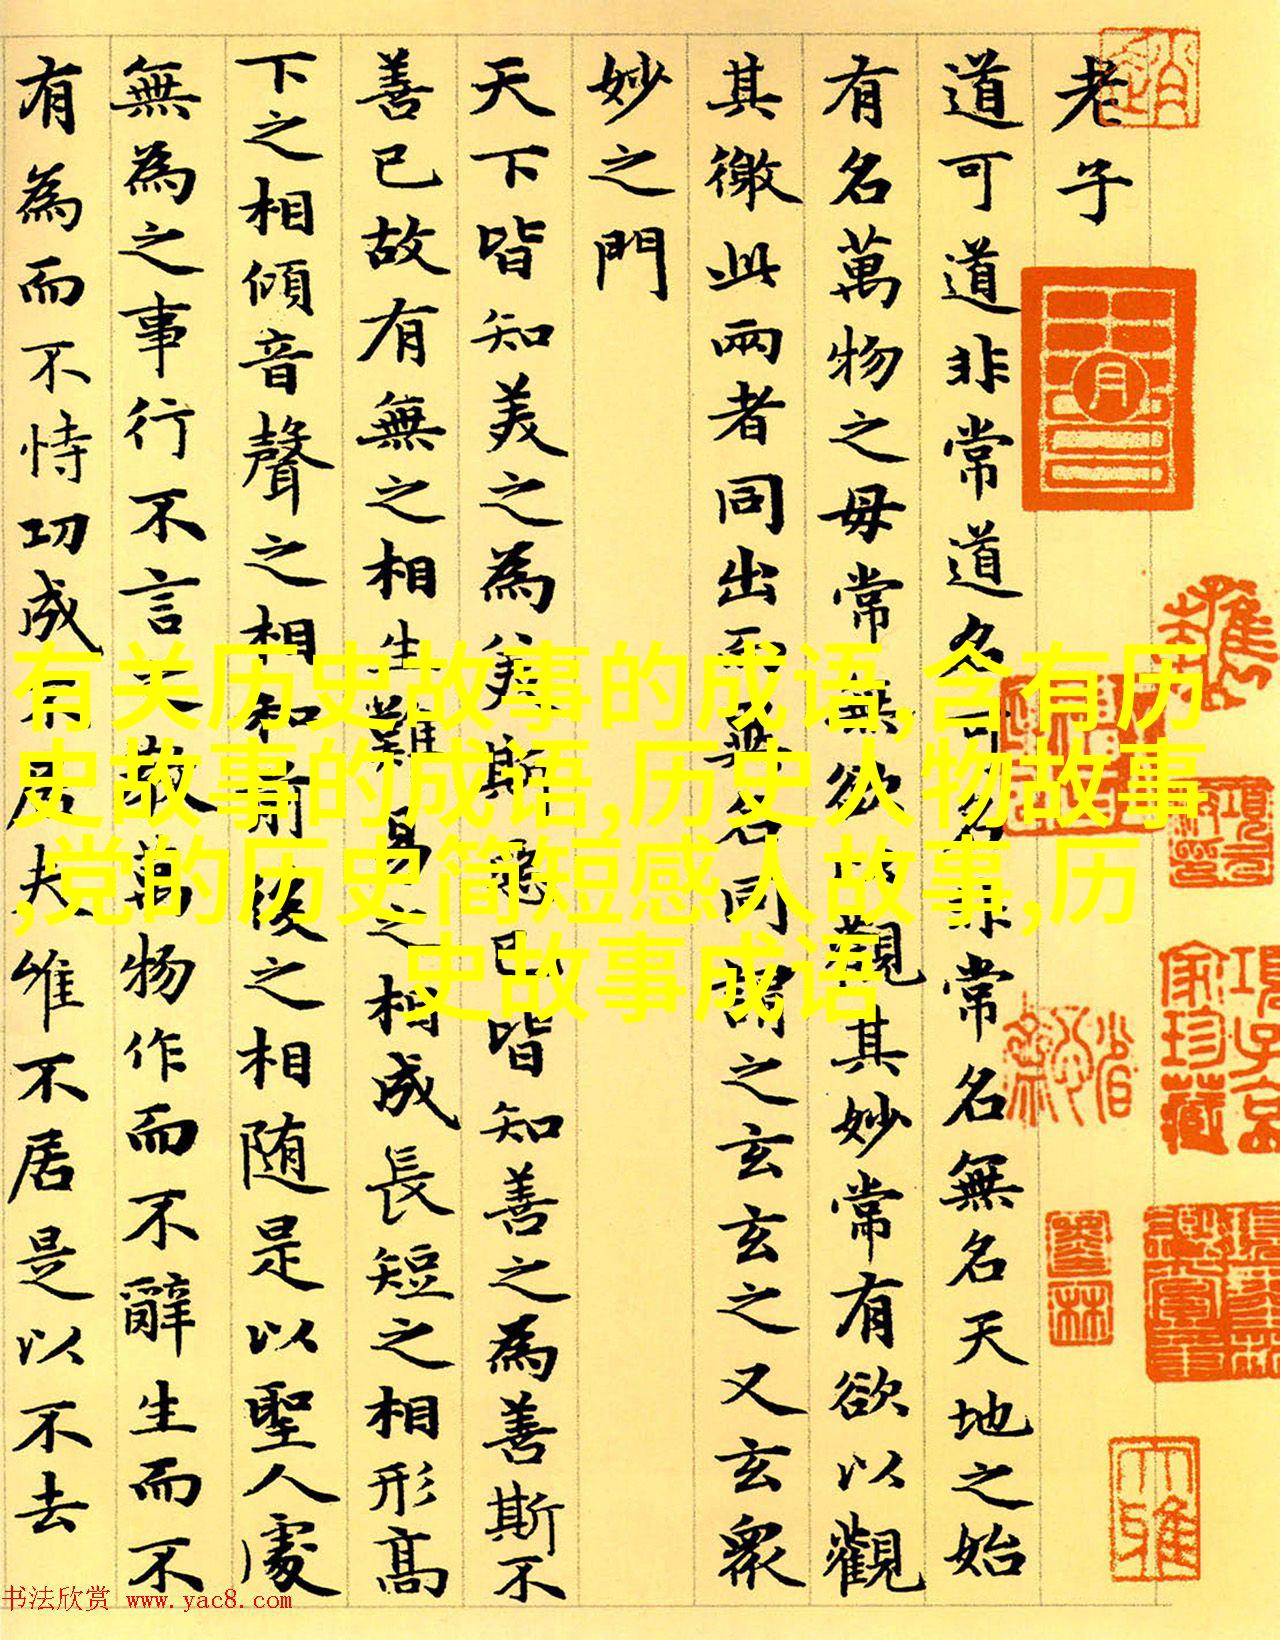 老子
道可道非常道名可名非常名無名天地之始
有名萬物之母常無欲以觀其妙常有欲以觀
其徼此兩者同出而異名同謂之玄玄之又玄衆
妙之門
天下皆知美之為美斯惡已皆知善之為善斯不
善已故有無之相生難易之相成長短之相形高
下之相傾音聲之相和前後之相随是以聖人處
無為之事行不言之教萬物作而不辭生而不
有為而不恃功成不居夫惟不居是以不去
有关历史故事的成语,含有历
史故事的成语,历史人物故事
,党的历史简短感人故事,历
史故事成语
項子京
家珍藏
书法欣赏 www.yac8.com